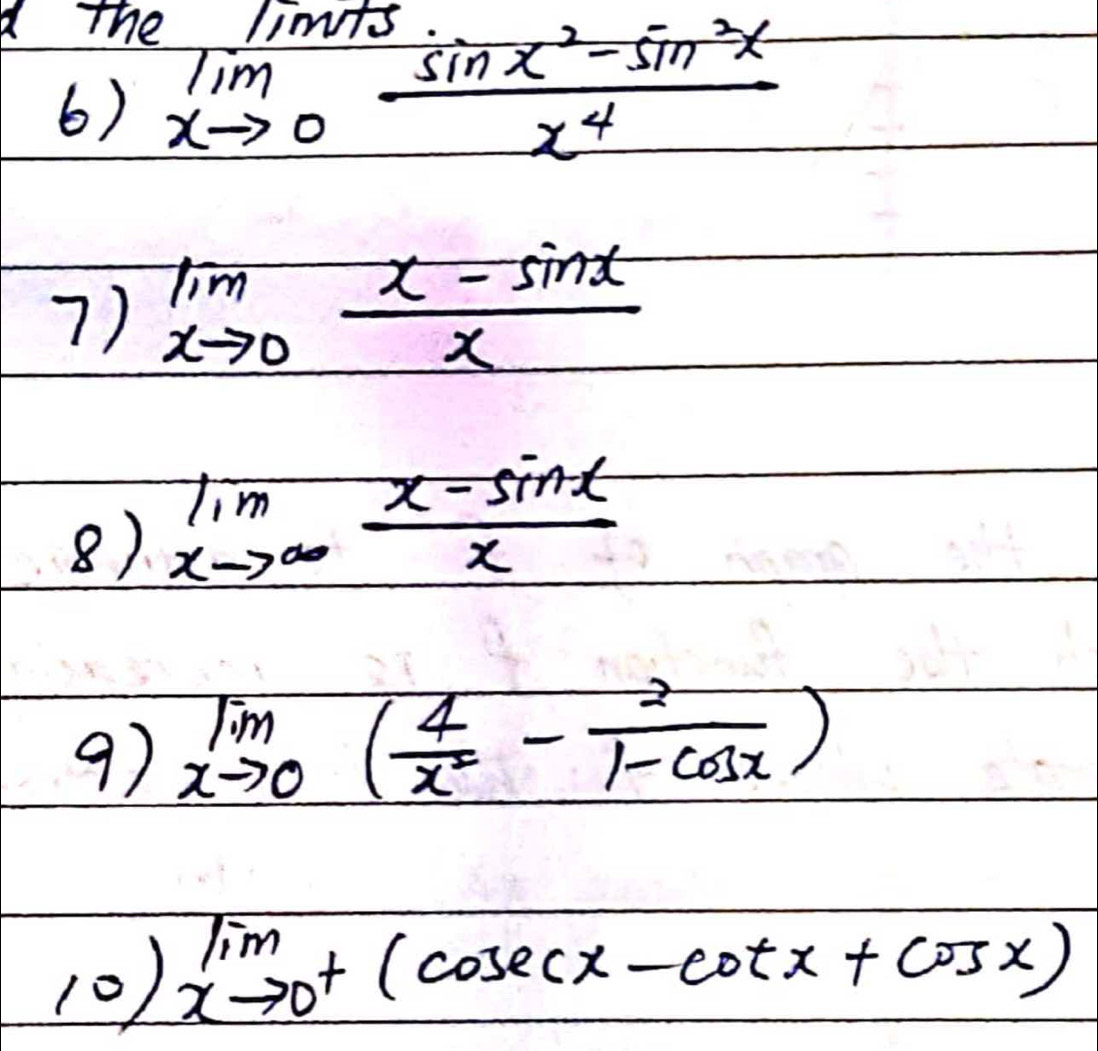 the limits.
6) lim x→0 (sin x² - sin²x) / x⁴
7) lim x→0 (x - sinx) / x
8) lim x→∞ (x - sinx) / x
9) lim x→0 (4/x² - 2/(1-cosx))
10) lim x→0⁺ (cosecx - cotx + cosx)